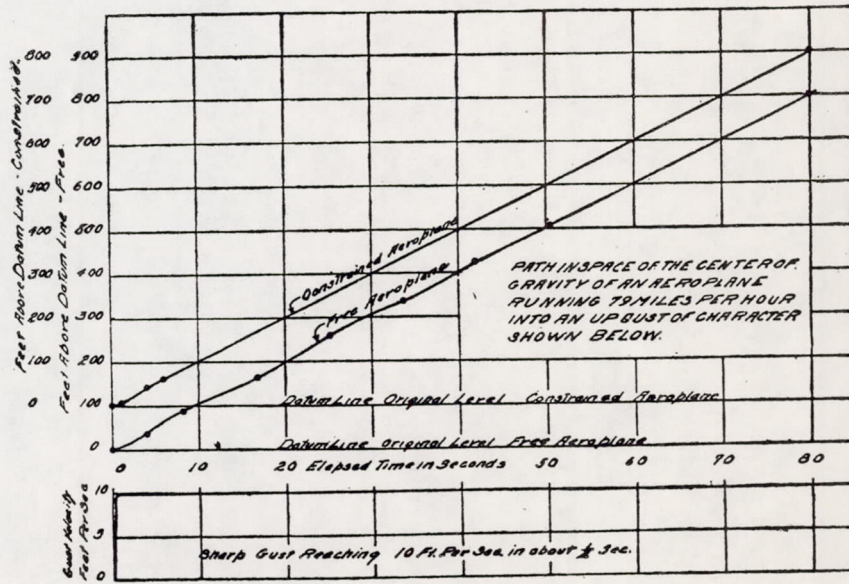 Feet Above Datum Line - Constrained.
Feet Above Datum Line - Free.
800 900
700 800
600 700
500 600
400 500
300 400
200 300
100 200
0 100
0
Constrained Aeroplane
Free Aeroplane
PATH IN SPACE OF THE CENTER OF
GRAVITY OF AN AEROPLANE
RUNNING 79 MILES PER HOUR
INTO AN UP GUST OF CHARACTER
SHOWN BELOW.
Datum Line Original Level Constrained Aeroplane
Datum Line Original Level Free Aeroplane
0 10 20 30 40 50 60 70 80
Elapsed Time in Seconds
Gust Velocity
Feet Per Sec
10
5
0
Sharp Gust Reaching 10 Ft. Per Sec. in about ½ Sec.